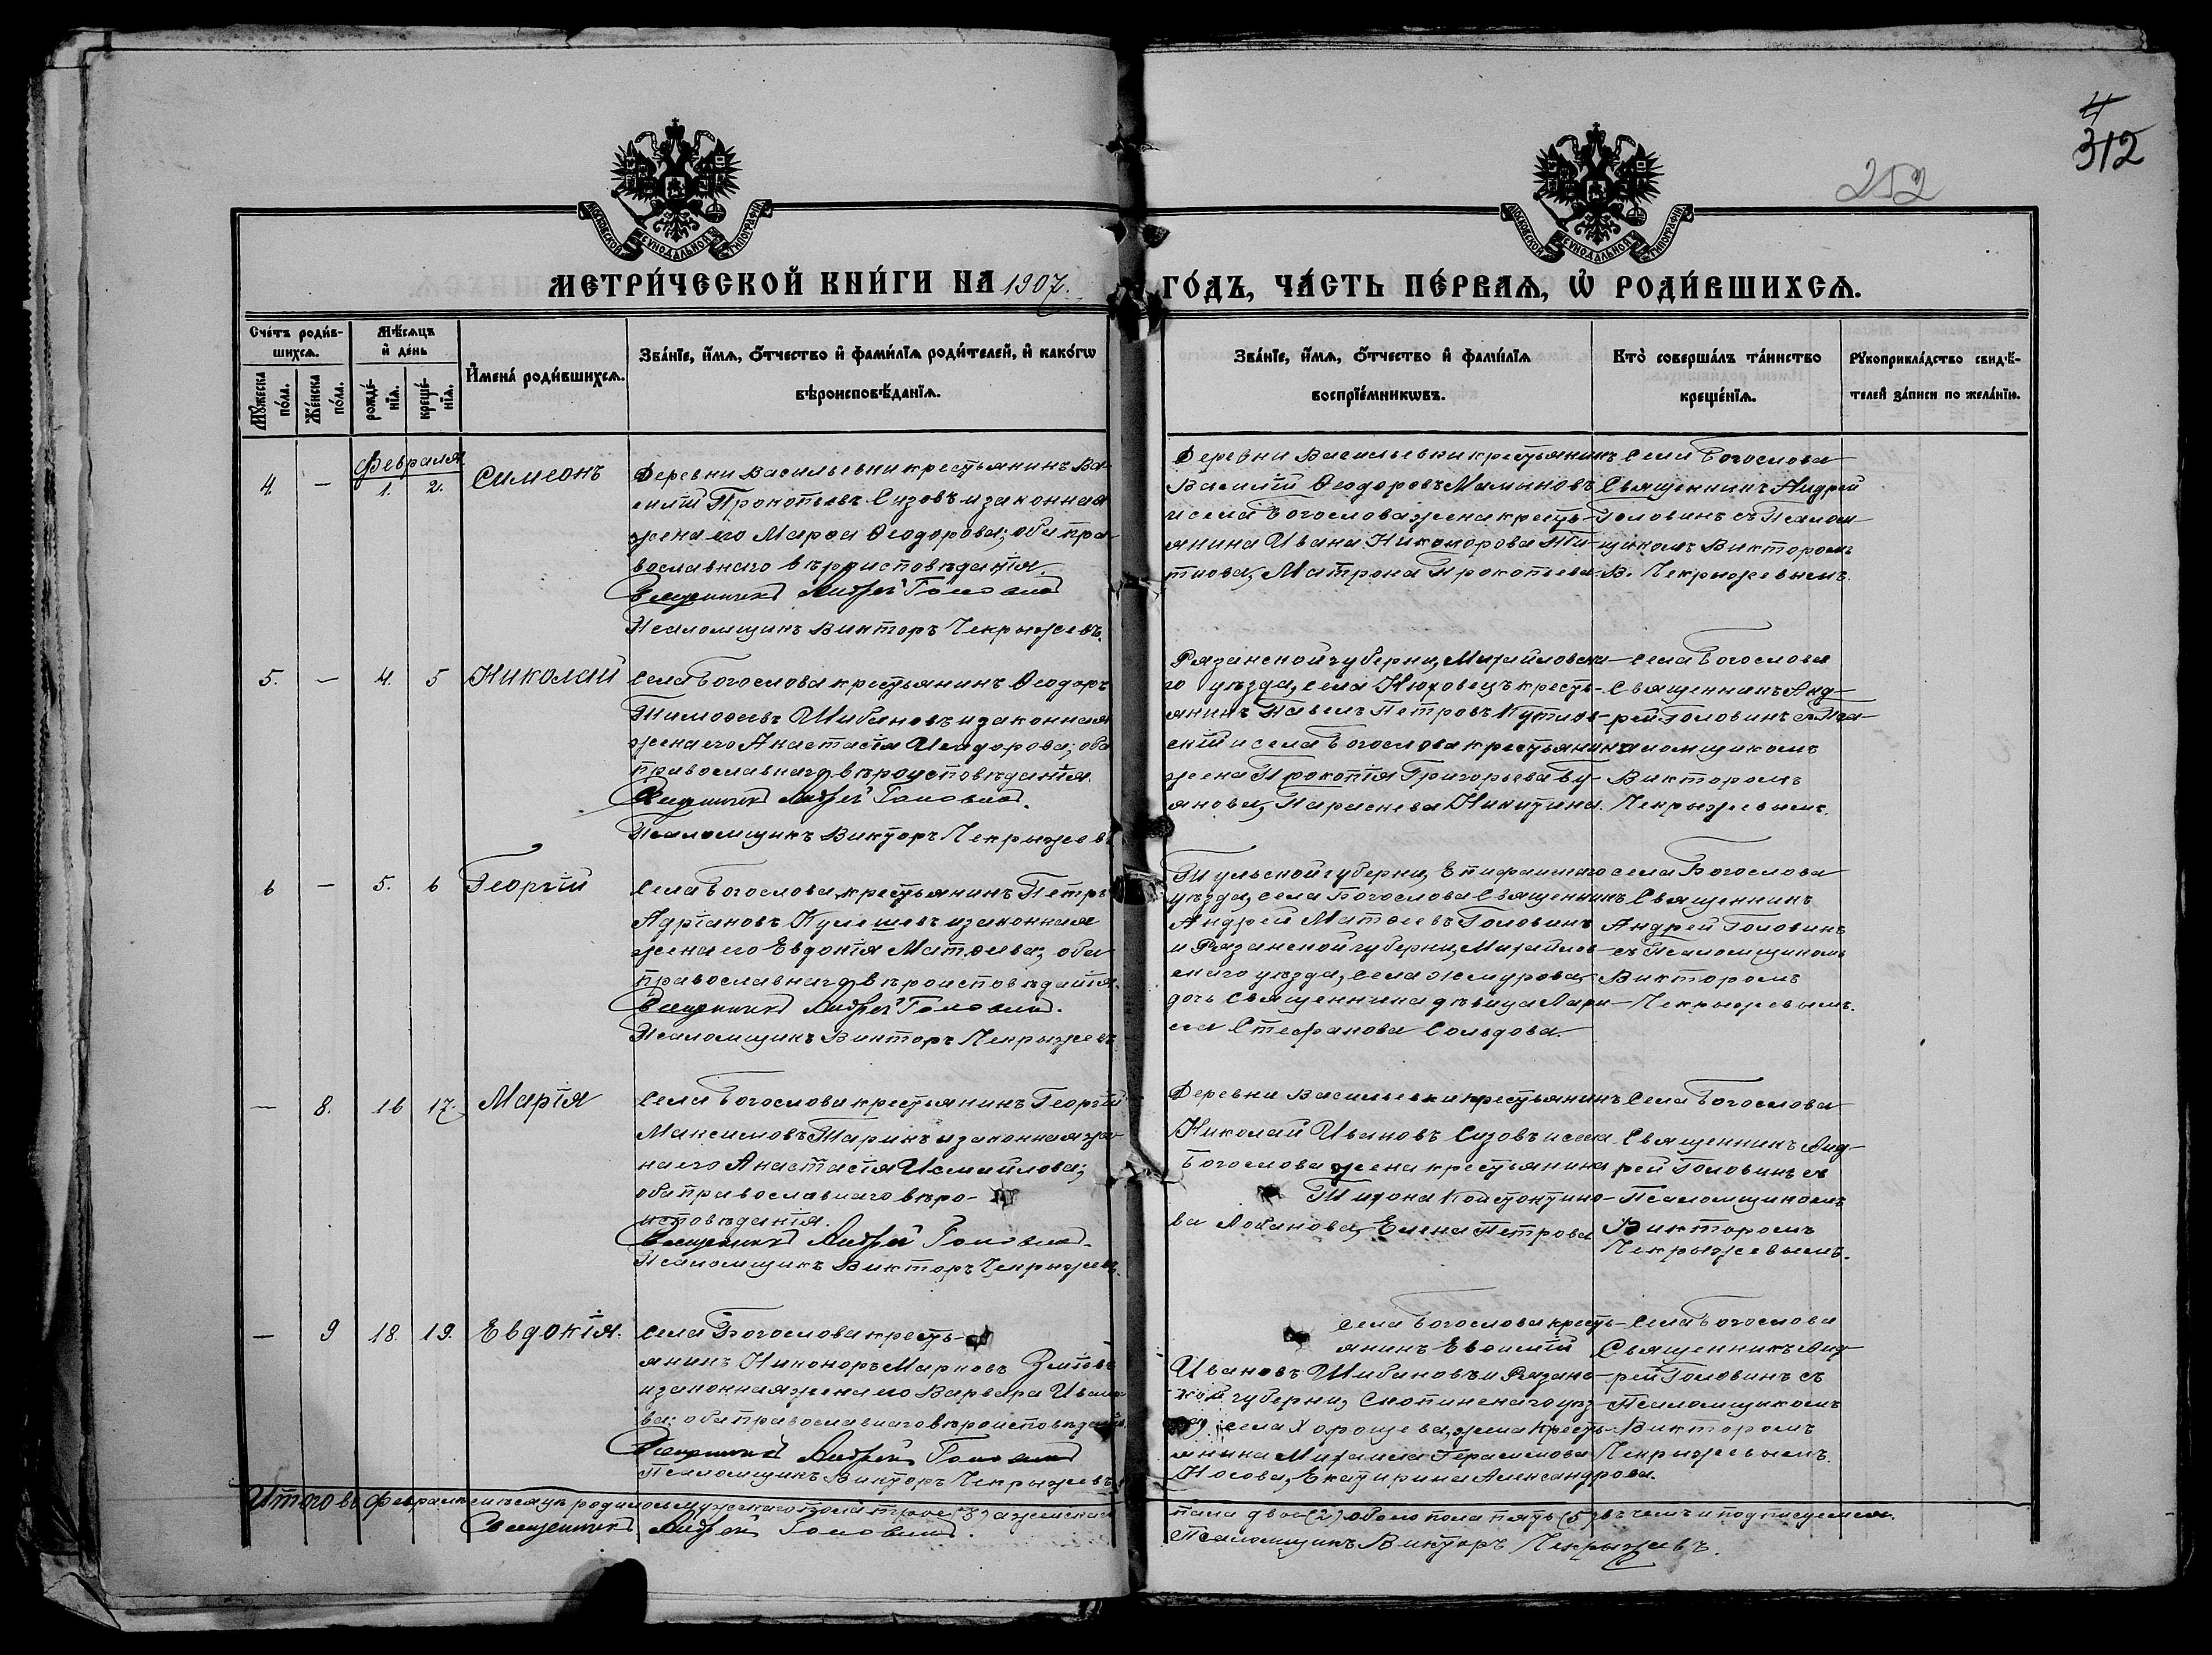 4
312
252
МОСКОВСКОЙ СѴНОДАЛЬНОЙ ТИПОГРАФІИ
МОСКОВСКОЙ СѴНОДАЛЬНОЙ ТИПОГРАФІИ
МЕТРИ́ЧЕСКОЙ КНИ́ГИ НА 1907. ГО́ДЪ, ЧА́СТЬ ПЕ́РВАѦ, Ѡ҆ РОДИ́ВШИХСѦ.
Сче́тъ роди́в-
шихсѧ.
Мꙋ́жеска по́ла.
Же́нска по́ла.
Мѣ́сѧцъ
и҆ де́нь
рожде́-
нїѧ.
креще́-
нїѧ.
И҆мена̀ роди́вшихсѧ.
Зва́нїе, и҆́мѧ, ѻ҆́тчество и҆ фами́лїѧ роди́телей, и҆ како́гѡ
вѣроисповѣ́данїѧ.
Зва́нїе, и҆́мѧ, ѻ҆́тчество и҆ фами́лїѧ
воспрїе́мникѡвъ.
Кто̀ соверша́лъ та́инство
креще́нїѧ.
Рꙋкоприкла́дство свидѣ́-
телей за́писи по жела́нїю.
Февраля
4. — 1. 2. Симеонъ
Деревни Васильевки крестьянинъ Ва-
силій Прокопьевъ Сизовъ и законная
жена его Марѳа Ѳеодорова; оба пра-
вославнаго вѣроисповѣданія.
Священникъ Андрей Головинъ
Псаломщикъ Викторъ Чекрыжевъ.
Деревни Васильевки крестьянинъ
Василій Ѳеодоровъ Мамыновъ
и села Богослова жена кресть-
янина Ивана Никонорова
Матрона Прокопьева.
Села Богослова
Священникъ Андрей
Головинъ съ Псалом-
щикомъ Викторомъ
В. Чекрыжевымъ.
5. — 4. 5 Николай
Села Богослова крестьянинъ Ѳеодоръ
Тимоѳеевъ Шибановъ и законная
жена его Анастасія Исидорова; оба
православнаго вѣроисповѣданія.
Священникъ Андрей Головинъ.
Псаломщикъ Викторъ Чекрыжевъ
Рязанской губерніи, Михайловска-
го уѣзда, села кресть-
янинъ Павелъ Петровъ
и села Богослова крестьянина
жена Прокопія Григорьева Бу-
янова, Параскева Никитина.
Села Богослова
Священникъ Анд-
рей Головинъ съ Пса-
ломщикомъ
Викторомъ
Чекрыжевымъ.
6 — 5. 6 Георгій
Села Богослова крестьянинъ Петръ
Адріановъ Кулешевъ и законная
жена его Евдокія Матѳеева; оба
православнаго вѣроисповѣданія.
Священникъ Андрей Головинъ.
Псаломщикъ Викторъ Чекрыжевъ
Тульской губерніи, Епифанскаго
уѣзда, села Богослова Священникъ
Андрей Матѳеевъ Головинъ
и Рязанской губерніи, Михайлов-
скаго уѣзда, села Жмурова,
дочь Священника дѣвица Лари-
са Стефанова Сольдова.
Села Богослова
Священникъ
Андрей Головинъ
съ Псаломщикомъ
Викторомъ
Чекрыжевымъ.
— 8. 16 17. Марія
Села Богослова крестьянинъ Георгій
Максимовъ Таринъ и законная же-
на его Анастасія Исмаилова;
оба православнаго вѣро-
исповѣданія.
Священникъ Андрей Головинъ.
Псаломщикъ Викторъ Чекрыжевъ.
Деревни Васильевки крестьянинъ
Николай Ивановъ Сизовъ и села
Богослова жена крестьянина
Тихона Константино-
ва Лобанова, Елена Петрова
Села Богослова
Священникъ Анд-
рей Головинъ съ
Псаломщикомъ
Викторомъ
Чекрыжевымъ.
— 9 18. 19. Евдокія.
Села Богослова кресть-
янинъ Никоноръ Марковъ Зміевъ
и законная жена его Варвара Ивано-
ва; оба православнаго вѣроисповѣданія.
Священникъ Андрей Головинъ
Псаломщикъ Викторъ Чекрыжевъ.
Села Богослова кресть-
янинъ Евѳимій
Ивановъ Шибановъ и Рязанс-
кой губерніи, Скопинскаго уѣз-
да, села Хорошева, жена кресть-
янина Михаила Герасимова
Носова, Екатирина Александрова.
Села Богослова
Священникъ Анд-
рей Головинъ съ
Псаломщикомъ
Викторомъ
Чекрыжевымъ.
Итого въ февралѣ мѣсяцѣ родилось мужескаго пола трое (3), а женскаго
пола двое (2), обоего пола пять (5) въ чемъ и подписуемся.
Священникъ Андрей Головинъ.
Псаломщикъ Викторъ Чекрыжевъ.